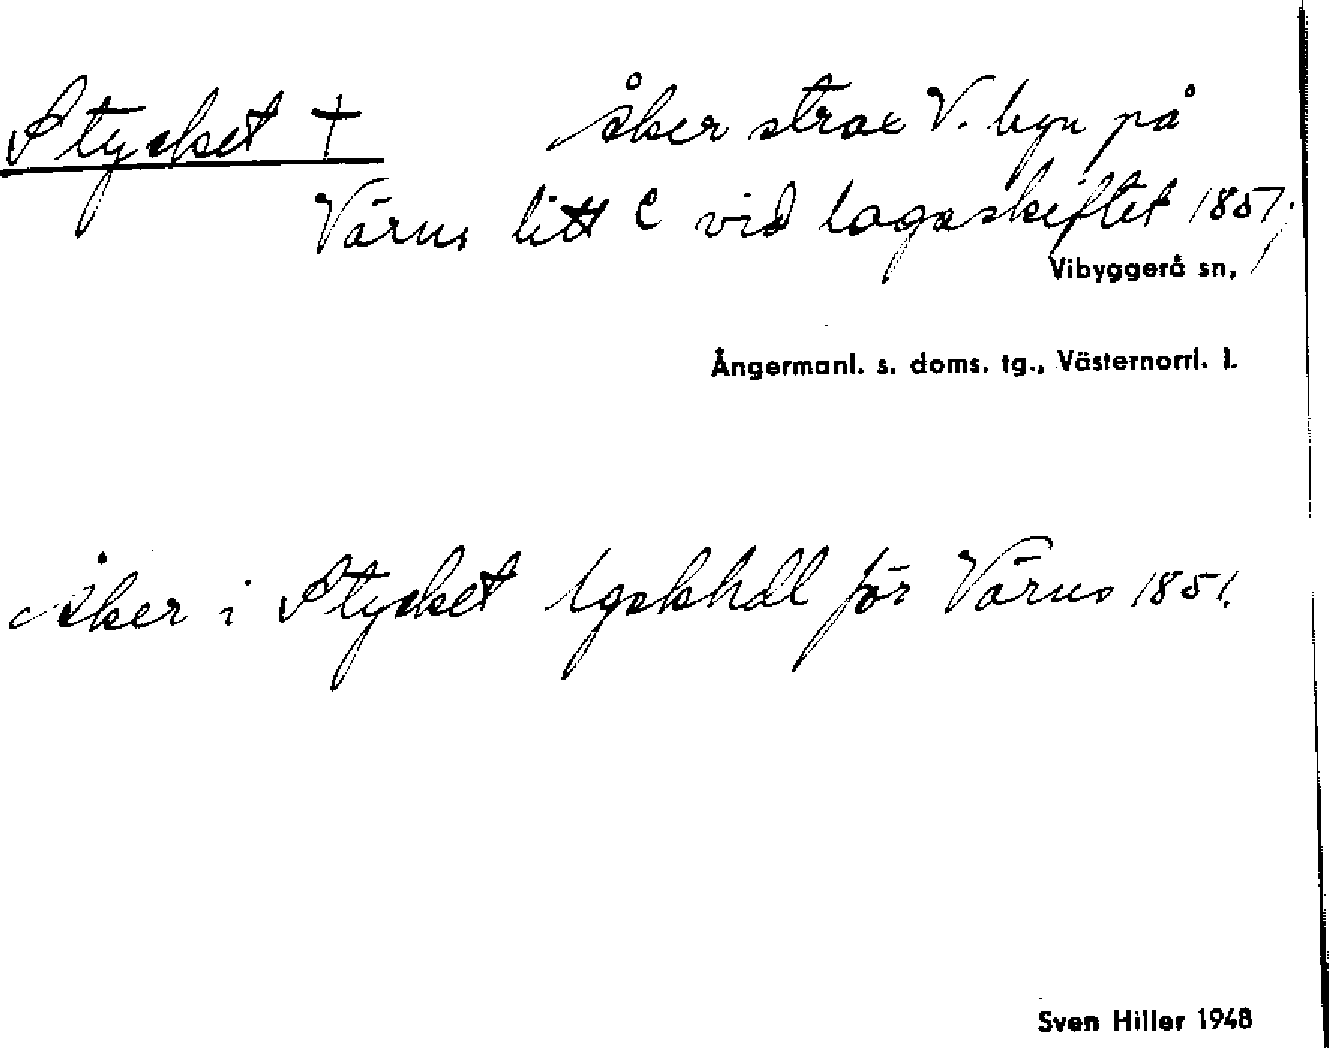 Stycket + åker strax V. byn på
Värns litt C vid lagaskiftet 1851;
Vibyggerå sn,
Ångermanl. s. doms. tg., Västernorrl. l.
Åker i Stycket lgskhdl för Värns 1851.
Sven Hiller 1948